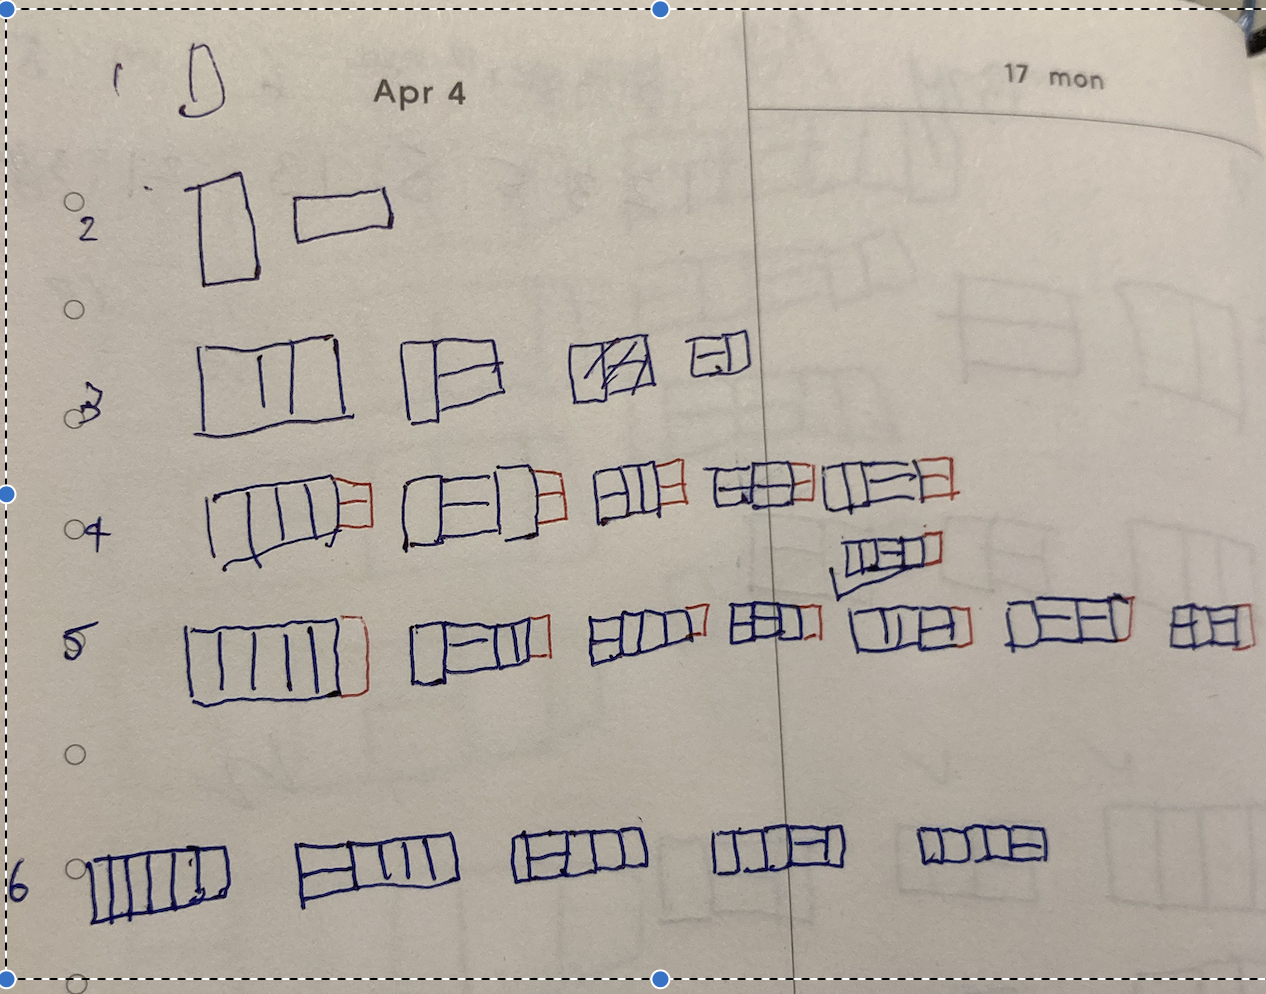 1
Apr 4
17 mon
2
3
4
5
6